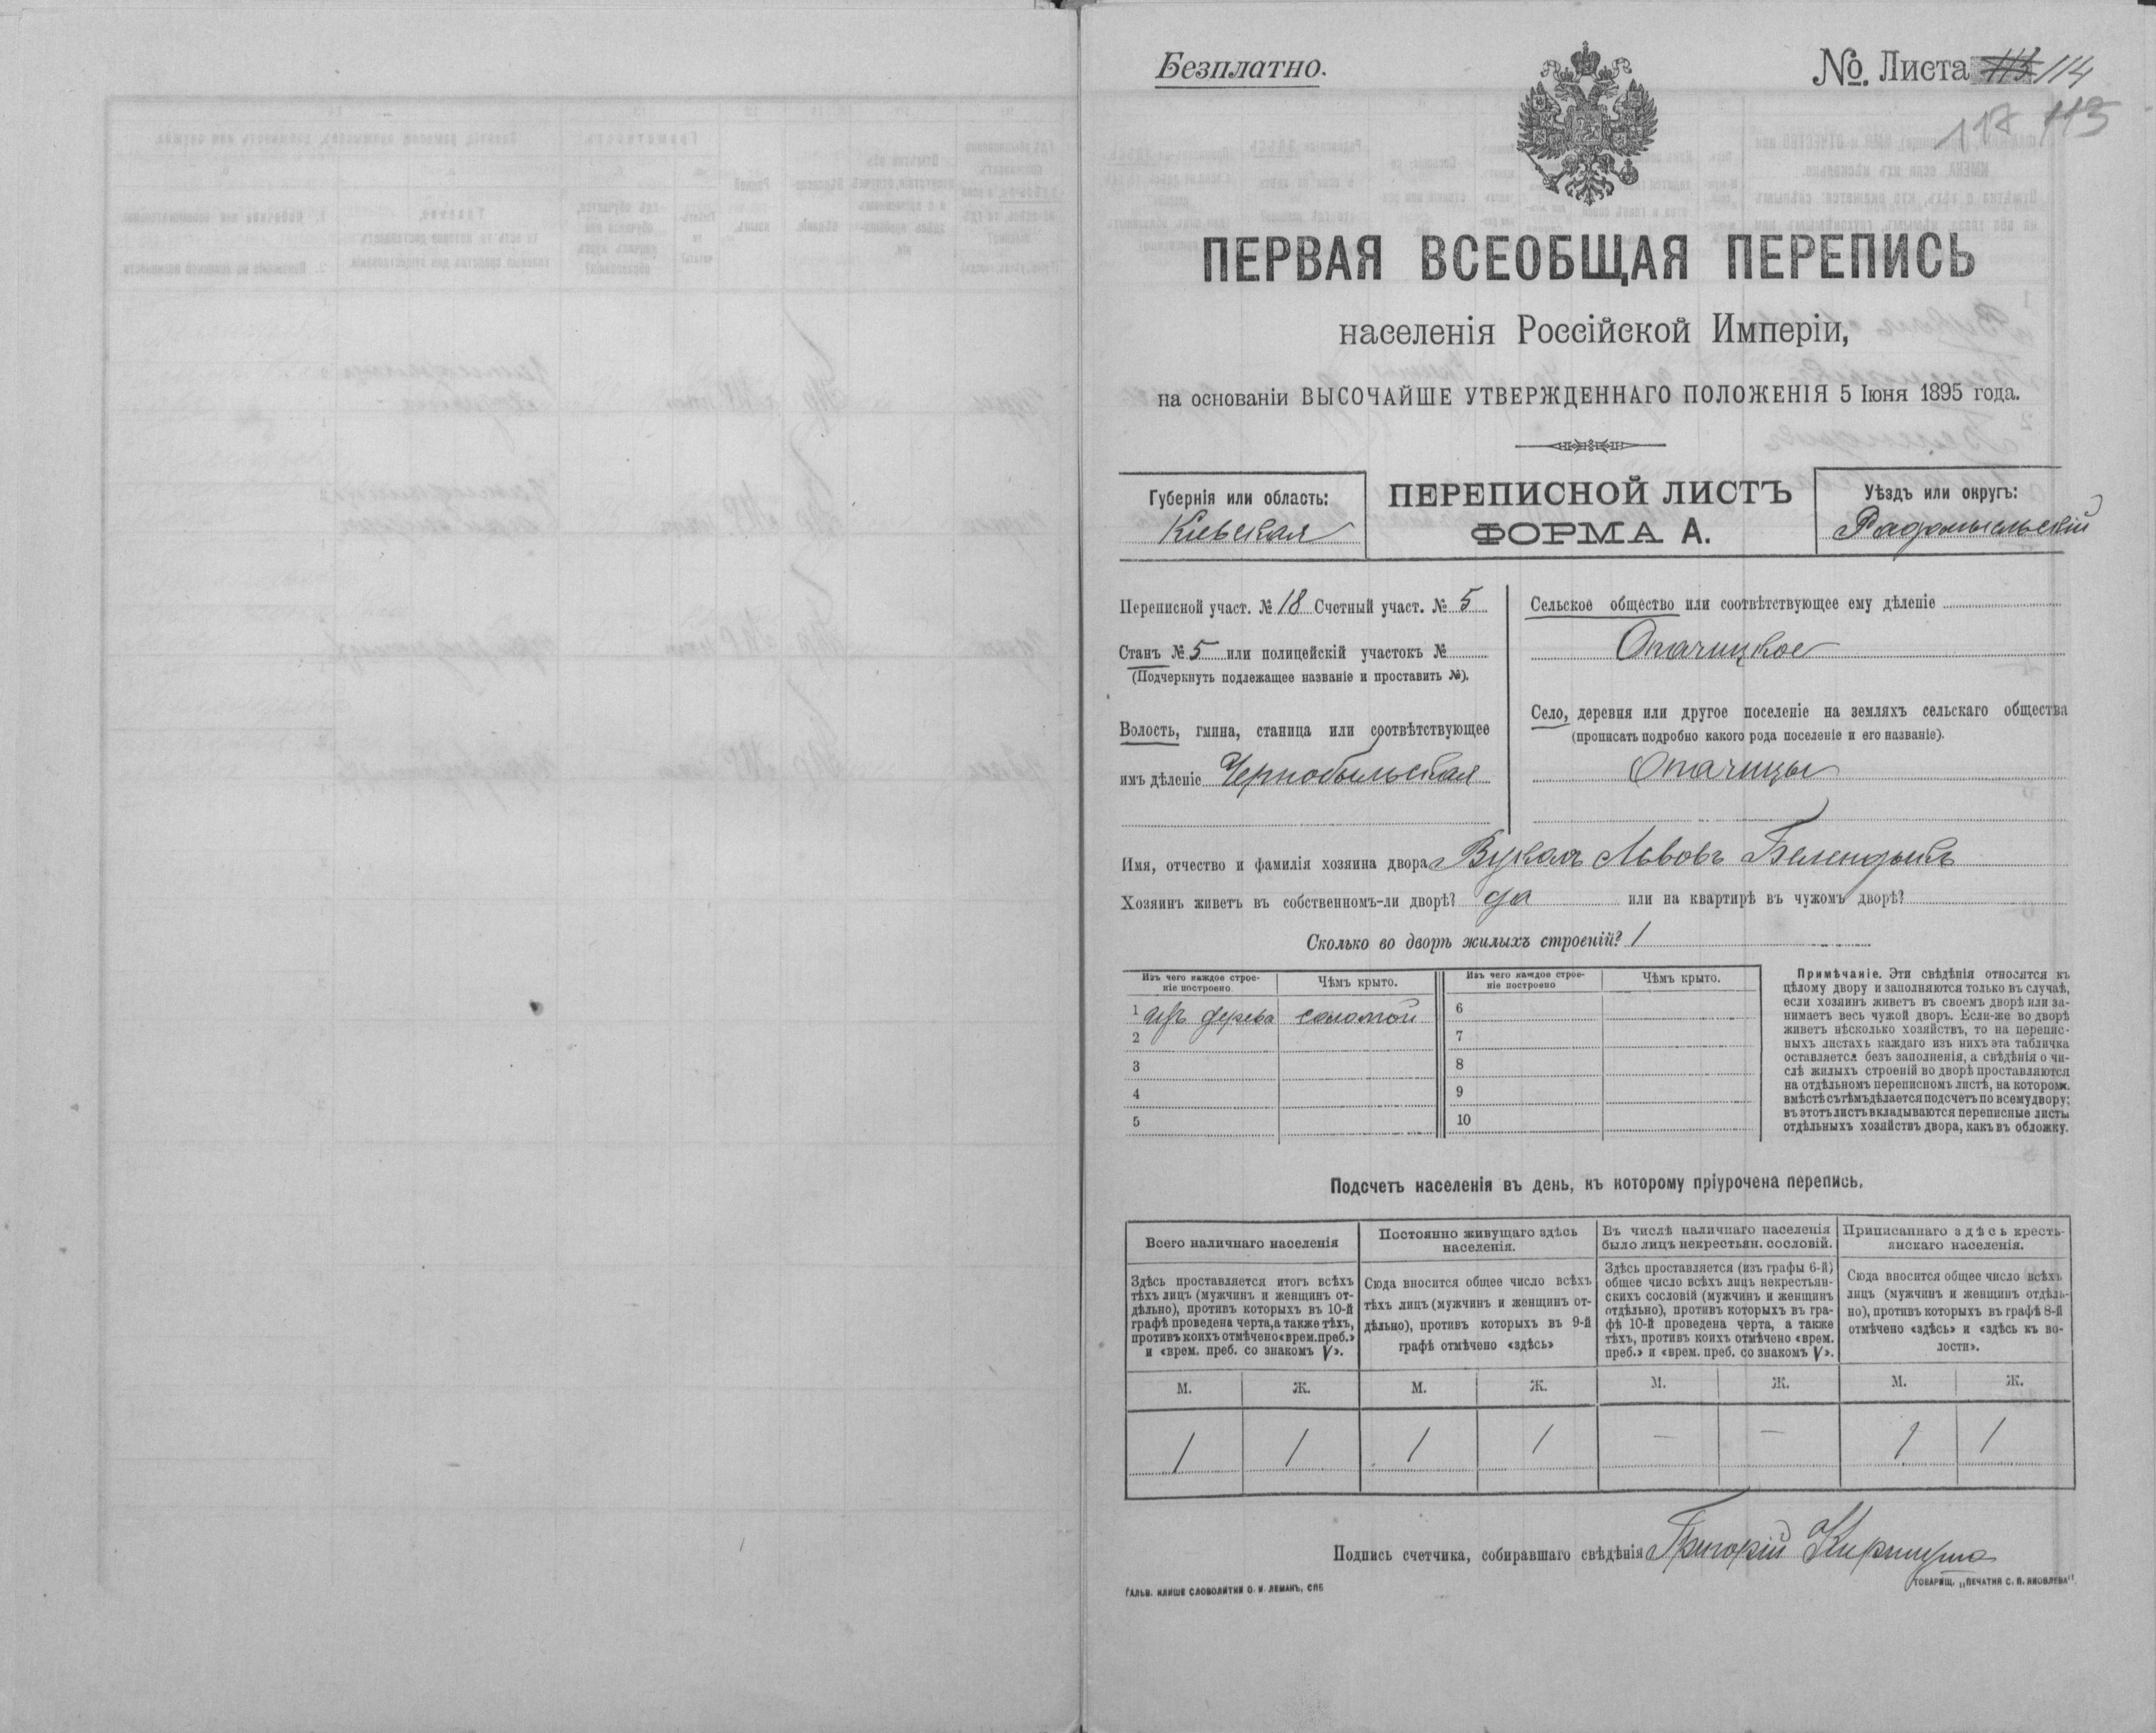 Безплатно.
№. Листа 114
118 113
ПЕРВАЯ ВСЕОБЩАЯ ПЕРЕПИСЬ
населенія Россійской Имперіи,
на основаніи ВЫСОЧАЙШЕ УТВЕРЖДЕННАГО ПОЛОЖЕНІЯ 5 Іюня 1895 года.
Губернія или область:
Кіевская
ПЕРЕПИСНОЙ ЛИСТЪ
ФОРМА А.
Уѣздъ или округъ:
Радомысльскій
Переписной участ. № 18 Счетный участ. № 5
Станъ № 5 или полицейскій участокъ №
(Подчеркнуть подлежащее названіе и проставить №).
Волость, гмина, станица или соотвѣтствующее
имъ дѣленіе Чернобыльская
Сельское общество или соотвѣтствующее ему дѣленіе
Опачицкое
Село, деревня или другое поселеніе на земляхъ сельскаго общества
(прописать подробно какого рода поселеніе и его названіе).
Опачицы
Имя, отчество и фамилія хозяина двора Вуколъ Львовъ
Хозяинъ живетъ въ собственномъ-ли дворѣ? да или на квартирѣ въ чужомъ дворѣ?
Сколько во дворѣ жилыхъ строеній? 1
Изъ чего каждое строе-
ніе построено
Чѣмъ крыто.
Изъ чего каждое строе-
ніе построено
Чѣмъ крыто.
1 изъ дерева соломой 6
2 7
3 8
4 9
5 10
Примѣчаніе. Эти свѣдѣнія относятся къ
цѣлому двору и заполняются только въ случаѣ,
если хозяинъ живетъ въ своемъ дворѣ или за-
нимаетъ весь чужой дворъ. Если-же во дворѣ
живетъ нѣсколько хозяйствъ, то на перепис-
ныхъ листахъ каждаго изъ нихъ эта табличка
оставляется безъ заполненія, а свѣдѣнія о чи-
слѣ жилыхъ строеній во дворѣ проставляются
на отдѣльномъ переписномъ листѣ, на которомъ
вмѣстѣ съ тѣмъ дѣлается подсчетъ по всему двору;
въ этотъ листъ вкладываются переписные листы
отдѣльныхъ хозяйствъ двора, какъ въ обложку.
Подсчетъ населенія въ день, къ которому пріурочена перепись.
Всего наличнаго населенія
Постоянно живущаго здѣсь
населенія.
Въ числѣ наличнаго населенія
было лицъ некрестьян. сословій.
Приписаннаго здѣсь кресть-
янскаго населенія.
Здѣсь проставляется итогъ всѣхъ
тѣхъ лицъ (мужчинъ и женщинъ от-
дѣльно), противъ которыхъ въ 10-й
графѣ проведена черта, а также тѣхъ,
противъ коихъ отмѣчено «врем. преб.»
и «врем. преб. со знакомъ V».
Сюда вносится общее число всѣхъ
тѣхъ лицъ (мужчинъ и женщинъ от-
дѣльно), противъ которыхъ въ 9-й
графѣ отмѣчено «здѣсь»
Здѣсь проставляется (изъ графы 6-й)
общее число всѣхъ лицъ некрестьян-
скихъ сословій (мужчинъ и женщинъ
отдѣльно), противъ которыхъ въ гра-
фѣ 10-й проведена черта, а также
тѣхъ, противъ коихъ отмѣчено «врем.
преб.» и «врем. преб. со знакомъ V».
Сюда вносится общее число всѣхъ
лицъ (мужчинъ и женщинъ отдѣль-
но), противъ которыхъ въ графѣ 8-й
отмѣчено «здѣсь» и «здѣсь къ во-
лости».
М. Ж. М. Ж. М. Ж. М. Ж.
1 1 1 1 — — 1 1
Подпись счетчика, собиравшаго свѣдѣнія Григорій
ГАЛЬВ. КЛИШЕ СЛОВОЛИТНИ О. И. ЛЕМАНЪ, СПБ
ТОВАРИЩ. „ПЕЧАТНЯ С. П. ЯКОВЛЕВА".